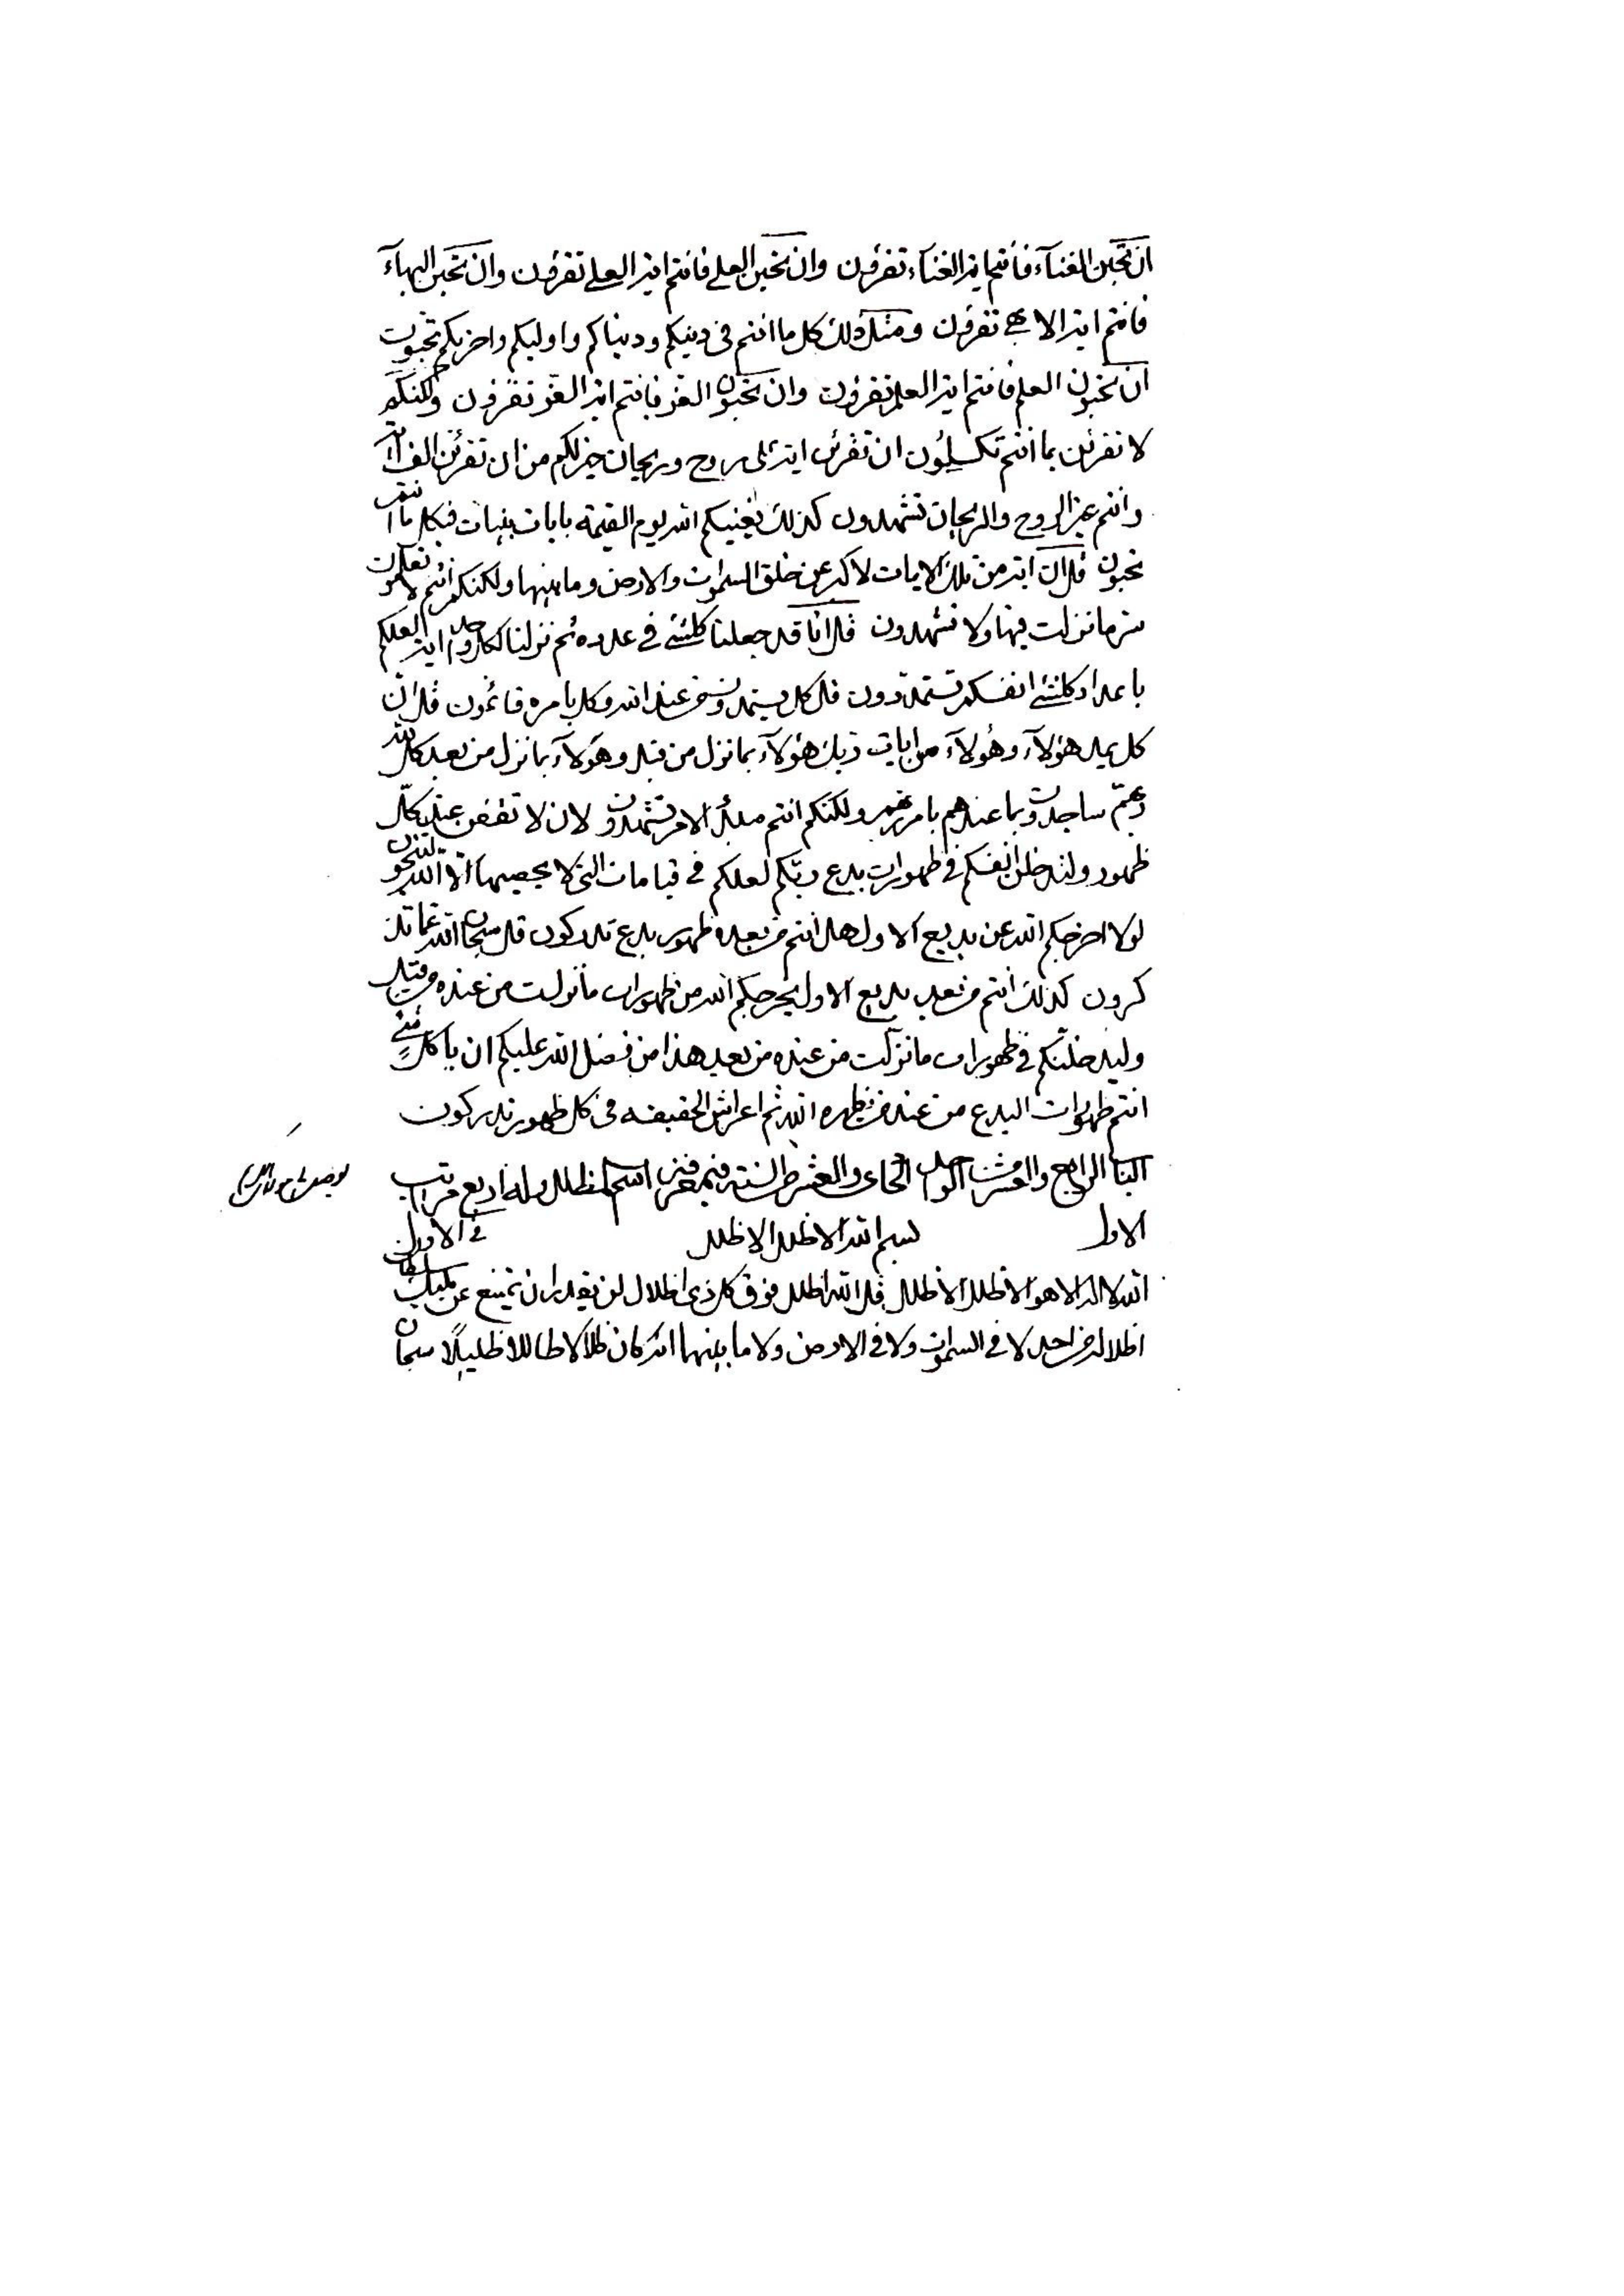 ان تحبن الغنآء فانتم اية الغنآء تقرؤن وان تحبن العلے فانتم اية العلے تقرؤن وان تحبن البهآء
فانتم اية الابهے تقرؤن ومثل ذلك كل ما انتم فى دينكم ودنياكم واوليكم واخريكم تحبون
ان تحبون العلم فانتم اية العلم تقرؤن وان تحبون العز فانتم اية العز تقرؤن ولكنكم
لا تقرئن بما انتم تكسلون ان تقرئن اية على روح وريحان خير لكم من ان تقرئن الف اية
وانتم غير الروح والريحان تشهدون كذلك يغنيكم الله يوم القيمة بايات بينات فبكل ما انتم
تحبون قل ان اية من تلك الايات لاكبر عن خلق السموات والارض وما بينهما ولكنكم انتم لا تعلمون
سر ما نزلت فيها ولا تشهدون قل انا قد جعلنا كلشئ فے عدده ثم نزلنا لكل واحد اية لعلكم
باعداد كلشئ انفسكم تستمدون قل كل يستمد من عند الله وكل بامره قائمون قل ان
كل يمد هؤلآء وهؤلآء من ايات ربك هؤلآء بما نزل من قبل وهؤلآء بما نزل من بعد كل لله
ربهم ساجدون وبما عندهم بامر ربهم ولكنكم انتم مبدء الامر تشهدون لان لا تقفن عند كل
ظهور ولتدخلن انفسكم فے ظهورات بدع ربكم لعلكم فے قيامات التى لا يحصيها الا الله لتنجون
لولا اخرجكم الله عن بديع الاول هل انتم من بعده ظهور بدع تدركون قل سبحان الله عما تذ
كرون كذلك انتم من بعد بديع الاول يخرجكم الله من ظهورات ما نزلت من عنده من قبل
وليدخلنكم فے ظهورات ما نزلت من عنده من بعد هذا من فضل الله عليكم ان يا كل شئ
انتم ظهورات البدع من عند من يظهره الله ثم اعراش الحقيقه فى كل ظهور تدركون
الباب الرابع والعشر من الواحد الحادى والعشر من السنة فى معرفة اسم الظلل وله اربع مراتب
الاول بسم الله الاظلل الاظلل فے الاول
الله لا اله الا هو الاظلل الاظلل قل الله اظلل فوق كل ذى اظلال لن يقدر ان يمتنع عن مليك سلطان
اظلاله من احد لا فے السموات ولا فى الارض ولا ما بينهما انه كان ظلالا ظاللا ظليلا سبحان